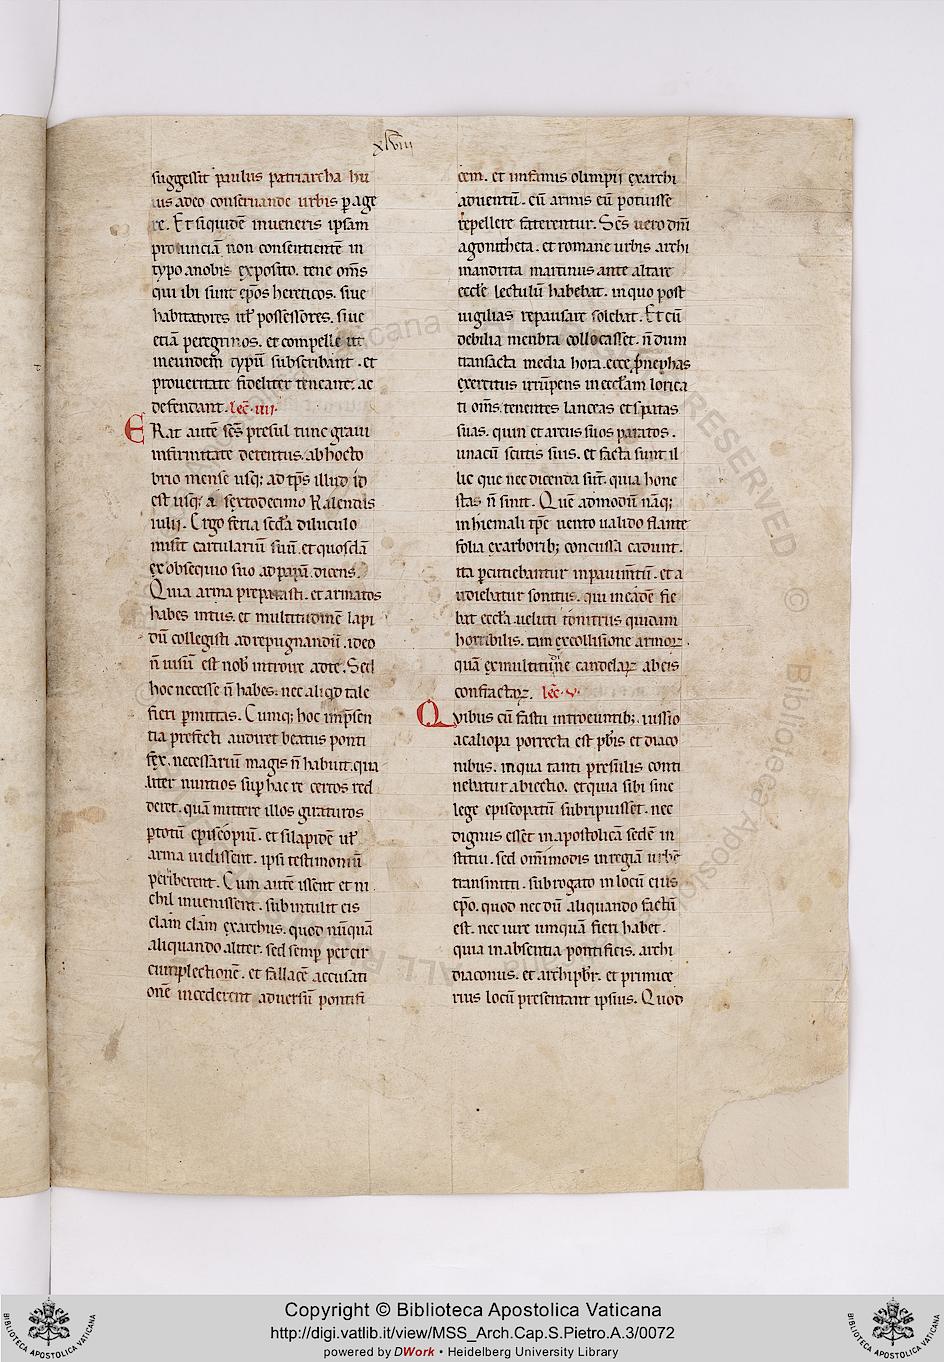 xlviii
suggessit paulus patriarcha hu
ius adeo conseruande urbis ꝑage
re. Et siquidē inueneris ipsam
prouinciā non consentientē in
typo anobis exposito. tene om̄s
qui ibi sunt ep̄os hereticos. siue
habitatores ul̄ possessores. siue
etiā peregrinos. et compelle ut
ineundem typū subscribant. et
proueritate fideliter teneant. ac
defendant. lec̄. iiii.
ERat autē sc̄s presul tunc graui
infirmitate detentus. ab hocto
brio mense usq; ad tp̄s illud id
est usq; a sextodecimo kalendas
iulii. Ergo feria sc̄da diluculo
misit cartulariū suū. et quosdā
ex obsequio suo ad papā. dicens.
Quia arma preparasti. et armatos
habes intus. et multitudinē lapi
dū collegisti ad repugnandū. ideo
n̄ uisū est nob̄ introire adte. Sed
hoc necesse n̄ habes. nec aliqd tale
fieri ꝑmittas. Cumq; hoc imp̄sen
tia prefecti audiret beatus ponti
fex. necessariū magis n̄ habuit. qua
liter nuntios suꝑ hac re certos red
deret. quā mittere illos giraturos
ꝑtotū episcopiū. et si lapidē ul̄
arma uidissent. ipsi testimoniū
periberent. Cum autē issent et ni
chil inuenissent. subintulit eis
clam clam exarchus. quod nūquā
aliquando aliter. sed semꝑ per cir
cumplectionē. et fallacē accusati
onē incederent aduersū pontifi
cem. et insanus olimpii exarchi
aduentū. cū armis eū potuisse
repellere faterentur. Sc̄s uero dn̄i
agonitheta. et romane urbis archi
mandrita martinus ante altare
eccl̄e lectulū habebat. inquo post
uigilias repausare solebat. Et cū
debilia menbra collocasset. n̄ dum
transacta media hora. ecce p̄nephas
exercitus irrūpens in eccl̄am lorica
ti om̄s. tenentes lanceas et spatas
suas. quin et arcus suos paratos.
unacū scutis suis. et facta sunt il
lic que nec dicenda sūt. quia hone
stas n̄ sinit. Quē admodū nāq;
in hiemali tp̄e uento ualido flante
folia exarborib; concussa cadunt.
ita ꝑcutiebantur in pauimtū. et a
udiebatur sonitus. qui ineadē fie
bat eccl̄a. ueluti tonitrus quidam
horribilis. tam excollisione armoꝝ.
quā ex multitudine candelaꝝ ab eis
confractaꝝ. lec̄. v.
QVibus cū fastu introeuntib;. iussio
acaliopa porrecta est pb̄is et diaco
nibus. inqua tanti presulis conti
nebatur abiectio. et quia sibi sine
lege episcopatū subripuisset. nec
dignus esset in apostolica sedē in
stitui. sed om̄imodis in regiā urbē
transmitti. subrogato in locū eius
ep̄o. quod nec dū aliquando factū
est. nec iure umquā fieri habet.
quia in absentia pontificis. archi
diaconus. et archipb̄r. et primice
rius locū presentant ipsius. Quod
Copyright © Biblioteca Apostolica Vaticana
http://digi.vatlib.it/view/MSS_Arch.Cap.S.Pietro.A.3/0072
powered by DWork • Heidelberg University Library